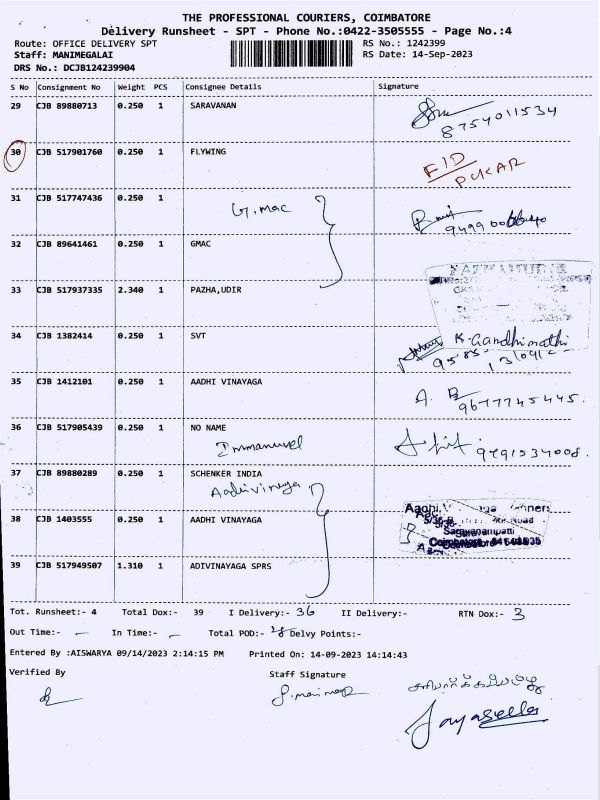 THE PROFESSIONAL COURIERS, COIMBATORE
Delivery Runsheet - SPT - Phone No.:0422-3505555 - Page No.:4
Route: OFFICE DELIVERY SPT RS No.: 1242399
Staff: MANIMEGALAI RS Date: 14-Sep-2023
DRS No.: DCJB124239904
S No Consignment No Weight PCS Consignee Details Signature
29 CJB 89880713 0.250 1 SARAVANAN
8754011534
30 CJB 517901760 0.250 1 FLYWING FID
PUKAR
31 CJB 517747436 0.250 1
G.mac
32 CJB 89641461 0.250 1 GMAC
33 CJB 517937335 2.340 1 PAZHA,UDIR
34 CJB 1382414 0.250 1 SVT K.Gandhimathi
35 CJB 1412101 0.250 1 AADHI VINAYAGA
9677745445.
36 CJB 517905439 0.250 1 NO NAME
Immanuvel 9791534008.
37 CJB 89880289 0.250 1 SCHENKER INDIA
Aadhivinayga
38 CJB 1403555 0.250 1 AADHI VINAYAGA
Saravanampatti
39 CJB 517949507 1.310 1 ADIVINAYAGA SPRS
Tot. Runsheet:- 4 Total Dox:- 39 I Delivery:- 36 II Delivery:- RTN Dox:- 3
Out Time:- – In Time:- – Total POD:- Delvy Points:-
Entered By :AISWARYA 09/14/2023 2:14:15 PM Printed On: 14-09-2023 14:14:43
Verified By Staff Signature